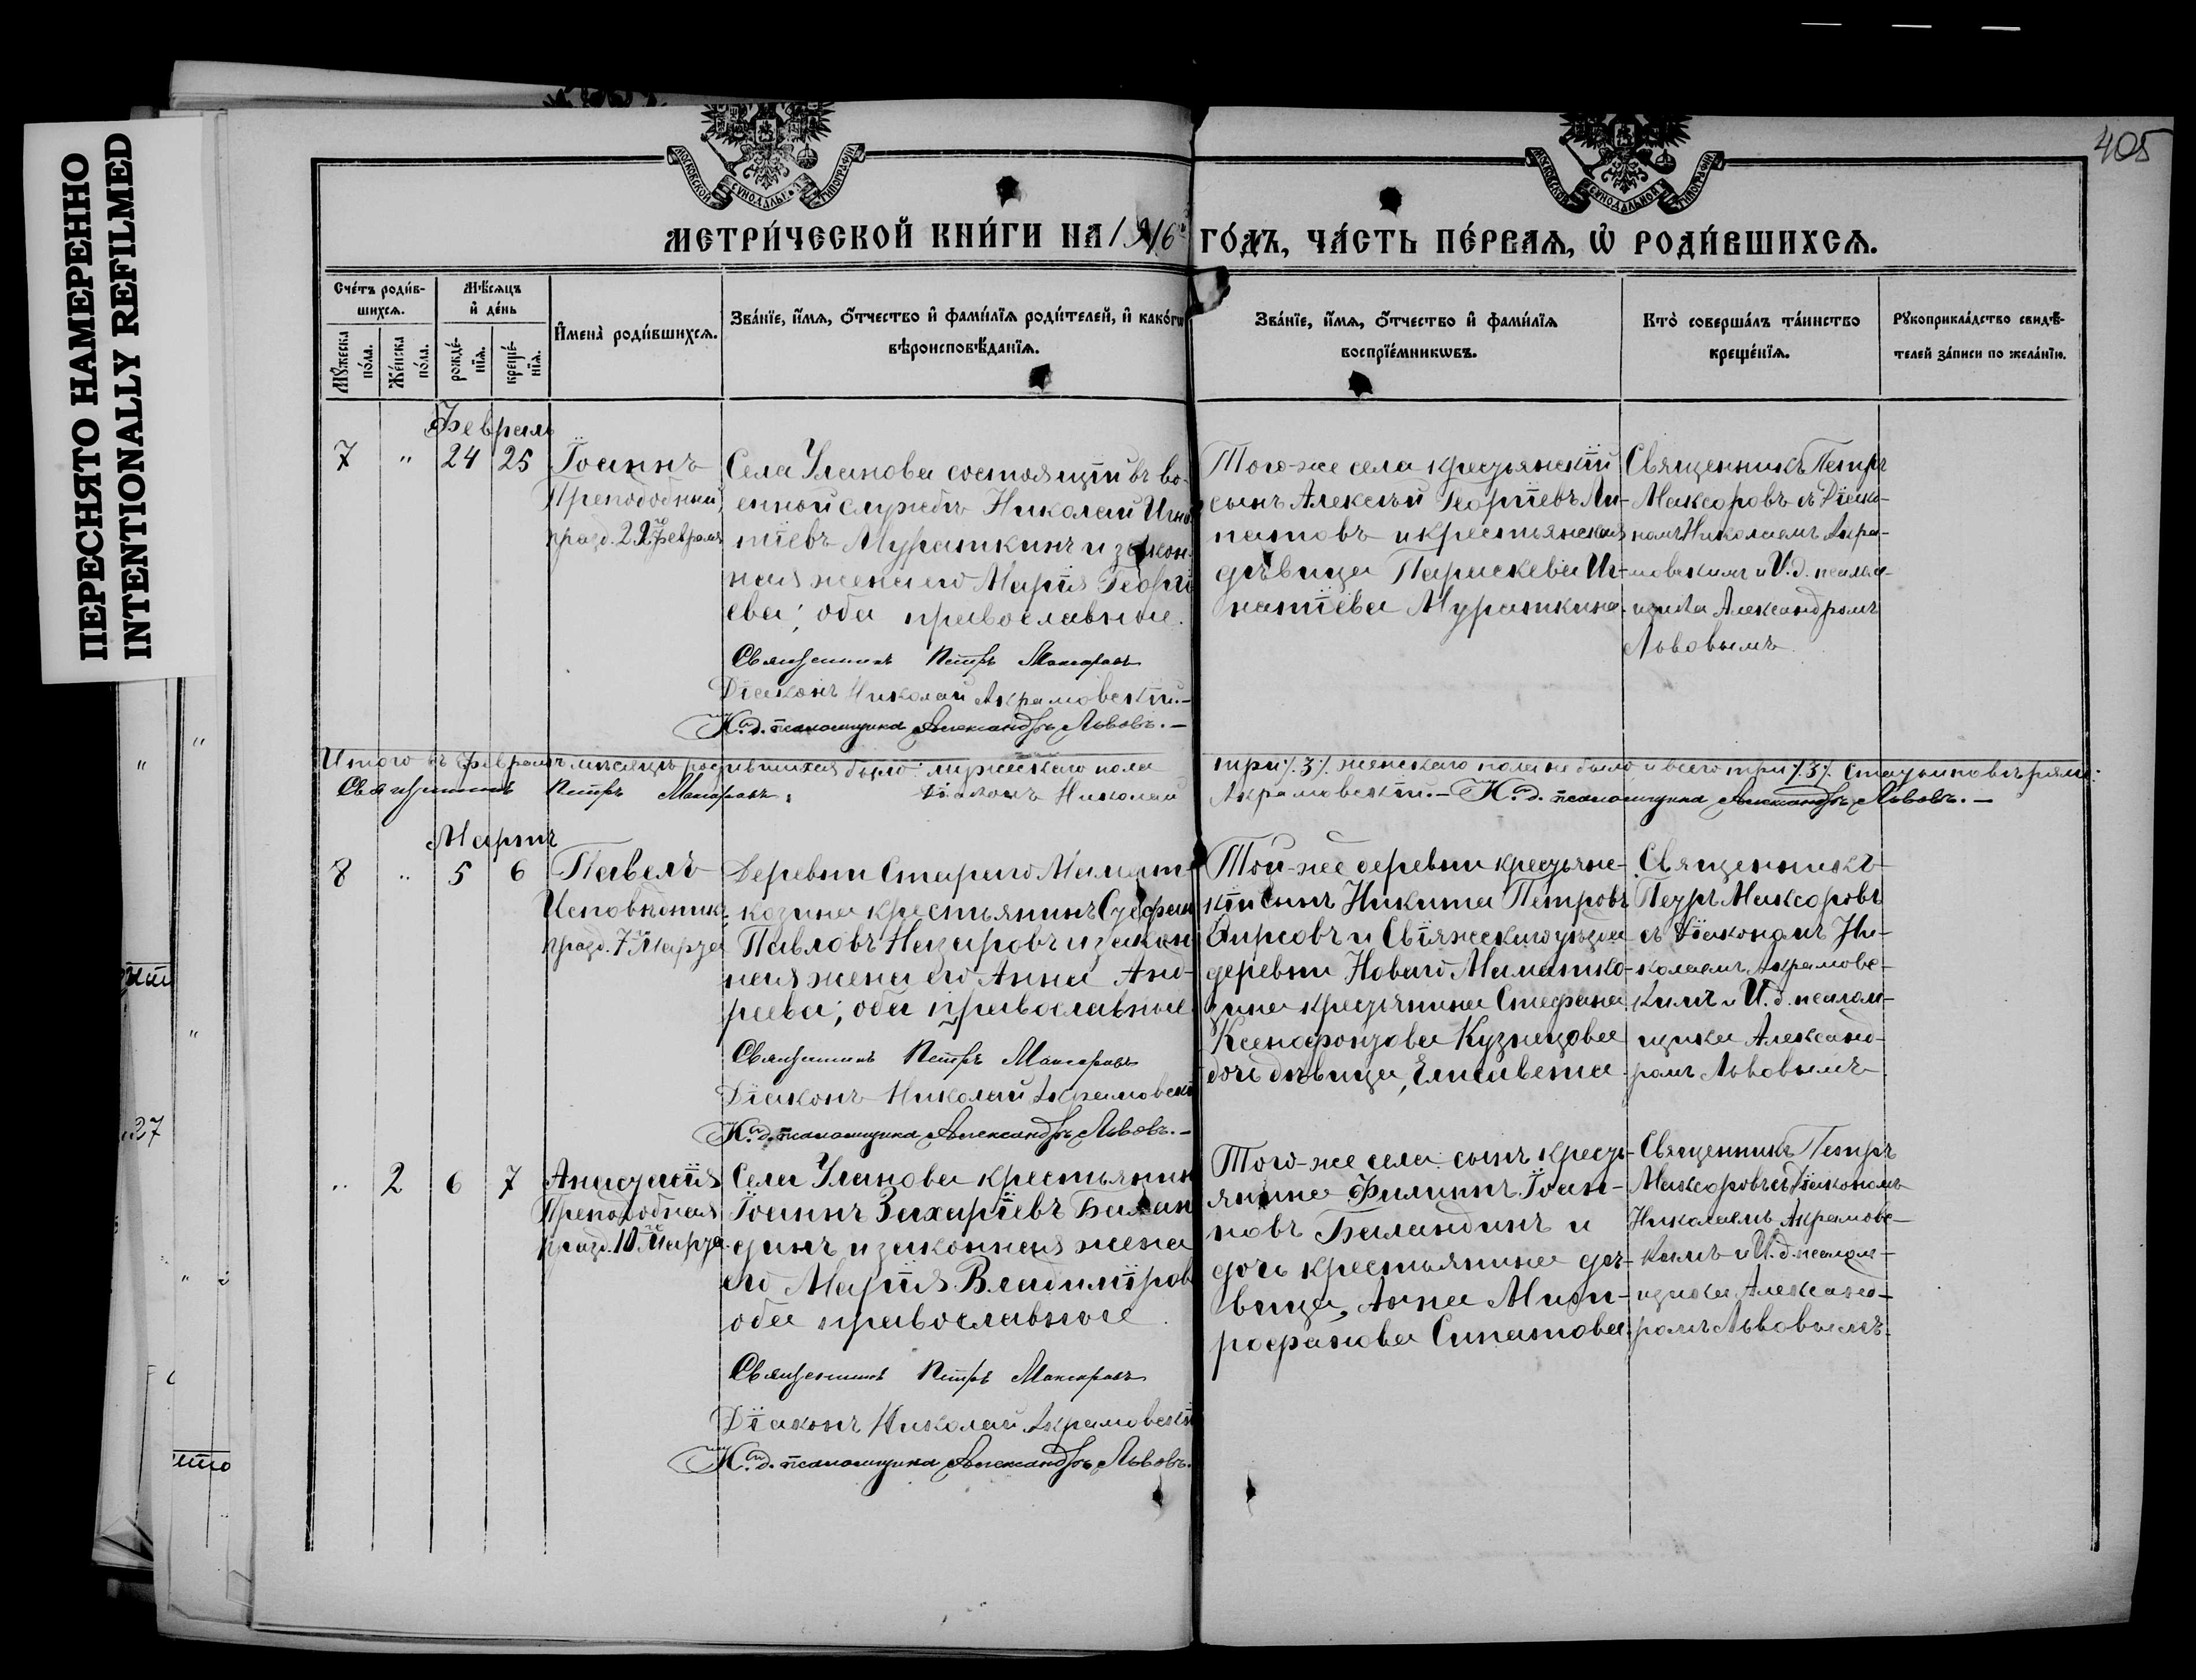 405
ПЕРЕСНЯТО НАМЕРЕННО
INTENTIONALLY REFILMED
МОСКОВСКОЙ СѴНОДАЛЬНОЙ ТИПОГРАФІИ
МОСКОВСКОЙ СѴНОДАЛЬНОЙ ТИПОГРАФІИ
МЕТРИ́ЧЕСКОЙ КНИ́ГИ НА 1916й ГО́ДЪ, ЧА́СТЬ ПЕ́РВАѦ, Ѽ РОДИ́ВШИХСѦ.
Сче́тъ роди́в-
шихсѧ.
Мꙋ́жеска
по́ла.
Же́нска
по́ла.
Мѣ́сѧцъ
и҆ де́нь
рожде́-
нїѧ.
креще́-
нїѧ.
И҆мена̀ роди́вшихсѧ.
Зва́нїе, и҆́мѧ, ѻ҆́тчество и҆ фами́лїѧ роди́телей, и҆ како́гѡ
вѣроисповѣ́данїѧ.
Зва́нїе, и҆́мѧ, ѻ҆́тчество и҆ фами́лїѧ
воспрїе́мникѡвъ.
Кто̀ соверша́лъ та́инство
креще́нїѧ.
Рꙋкоприкла́дство свидѣ́-
телей за́писи по жела́нїю.
Февраль
7 " 24 25
Іоаннъ
Преподобный,
празд. 29 Февраля
Села Уланова состоящій въ во-
енной службѣ Николай Игна-
тіевъ Мураткинъ и закон-
ная жена его Марія Георгі
ева; оба православные.
Священникъ Петръ Максоровъ
Діаконъ Николай Акрамовскій.-
И. д. псаломщика Александръ Львовъ.-
Того-же села крестьянскій
сынъ Алексѣй Георгіевъ Ли-
патовъ и крестьянская
дѣвица Параскева Иг-
натіева Мураткина.
Священникъ Петръ
Максоровъ съ Діако-
номъ Николаемъ Акра-
мовскимъ и И. д. псалом-
щика Александромъ
Львовымъ.
Итого въ Февралѣ мѣсяцѣ родившихся было: мужескаго пола три ٪ 3 ٪ женскаго пола не было и всего три ٪ 3 ٪
Священникъ Петръ Максоровъ. Діаконъ Николай Акрамовскій.- И. д. псаломщика Александръ Львовъ.-
Мартъ
8 " 5 6
Павелъ
Исповѣдник
празд. 7 Марта
Деревни Стараго Мамат-
козина крестьянинъ Стефан
Павловъ Назаровъ и закон
ная жена его Анна Анд-
реева; оба православные
Священникъ Петръ Максоровъ
Діаконъ Николай Акрамовскі
И. д. псаломщика Александръ Львовъ.-
Той-же деревни крестьянс-
кій сынъ Никита Петровъ
и Свіяжскаго уѣзда
деревни Новаго Маматко-
зина крестьянина Стефана
Ксенофонтова Кузнецова
дочь дѣвица, Елисавета
Священникъ
Петръ Максоровъ
съ Діакономъ Ни-
колаемъ Акрамовс-
кимъ и И. д. псалом-
щика Александ-
ромъ Львовымъ
" 2 6 7
Анастасія
Преподобная
празд. 10 Марта.
Села Уланова крестьянин
Іоаннъ Захаріевъ Балан
динъ и законная жена
его Марія Владиміров
оба православные.
Священникъ Петръ Максоровъ
Діаконъ Николай Акрамовскі
И. д. псаломщика Александръ Львовъ.
Того-же села сынъ кресть-
янина Филиппъ Іоан-
новъ Баландинъ и
дочь крестьянина дѣ-
вица, Анна Мит-
рофанова Сипатова.
Священникъ Петръ
Максоровъ съ Діакономъ
Николаемъ Акрамовс-
кимъ и И. д. псалом-
щика Александ-
ромъ Львовымъ.
27